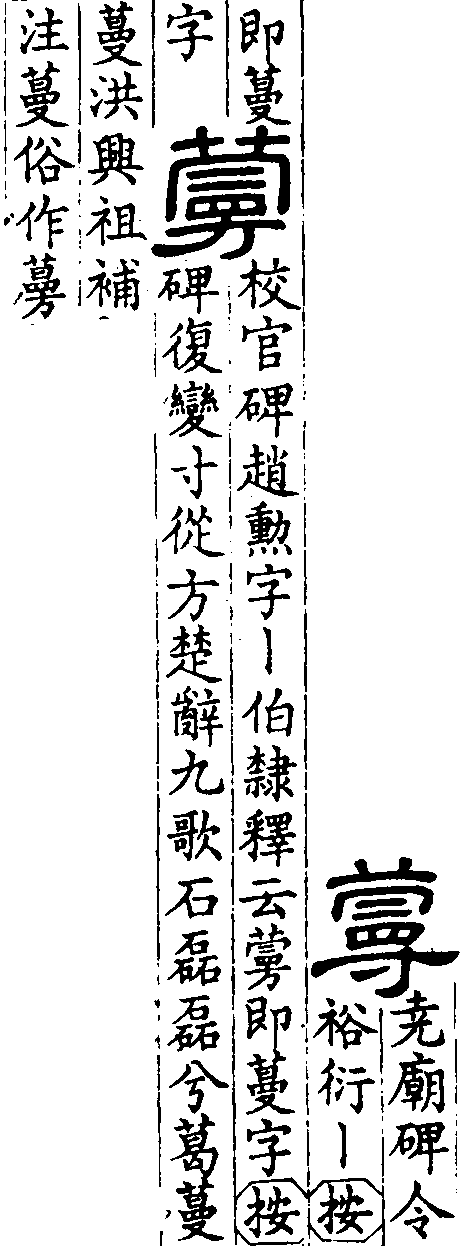 尭廟碑令
裕衍丨按
即蔓
字
校官碑趙勳字丨伯隸釋云即蔓字按
碑復變寸從方楚辭九歌石磊磊兮葛蔓
蔓洪興祖補
注蔓俗作